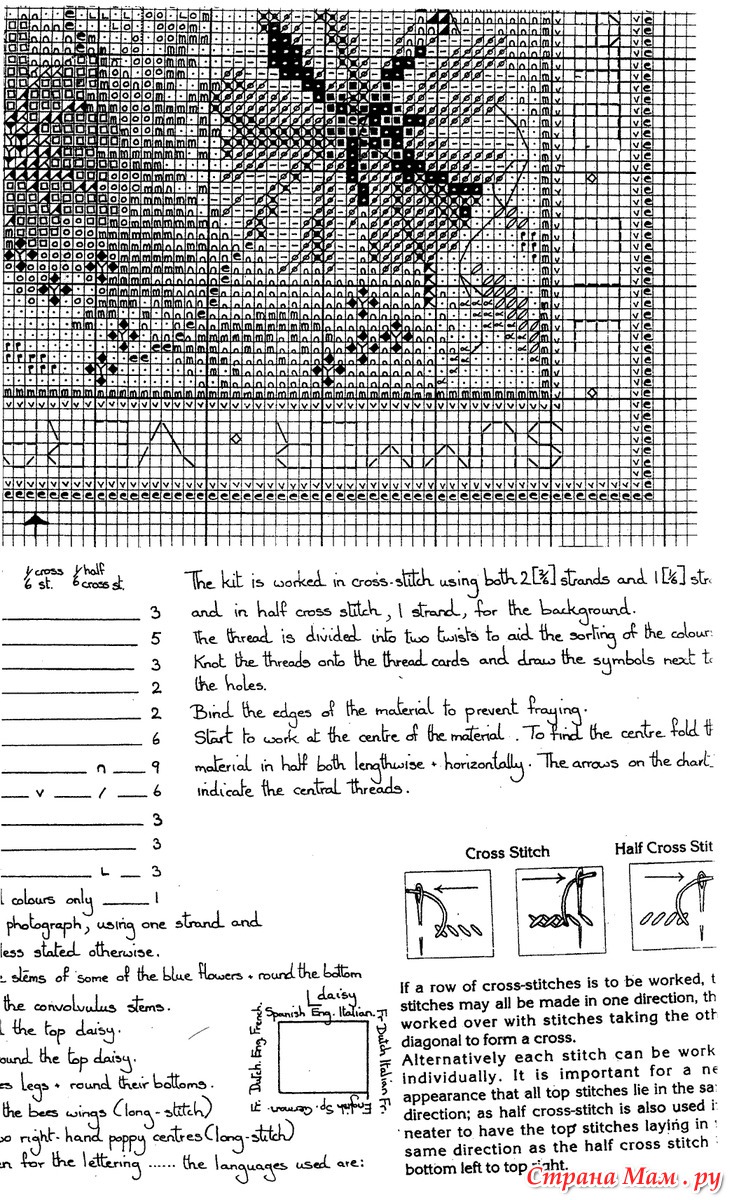 1/6 cross st. 1/6 half cross st.
3
5
3
2
2
6
n 9
v / 6
3
3
L 3
colours only 1
photograph, using one strand and
less stated otherwise.
stems of some of the blue flowers + round the bottom
daisy
the convolvulus stems.
the top daisy.
ound the top daisy.
es legs + round their bottoms.
the bees wings (long-stitch)
wo right-hand poppy centres (long-stitch)
en for the lettering ...... the languages used are:
The kit is worked in cross-stitch using both 2 [2/6] strands and 1 [1/6] str
and in half cross stitch, 1 strand, for the background.
The thread is divided into two twists to aid the sorting of the colour
Knot the threads onto the thread cards and draw the symbols next to
the holes.
Bind the edges of the material to prevent fraying.
Start to work at the centre of the material. To find the centre fold th
material in half both lengthwise + horizontally. The arrows on the chart
indicate the central threads.
Spanish Eng. Italian.
Fr. Dutch Italian Fr.
English Sp. German.
Fr. Dutch. Eng. French.
Cross Stitch
Half Cross Stit
If a row of cross-stitches is to be worked, t
stitches may all be made in one direction, th
worked over with stitches taking the oth
diagonal to form a cross.
Alternatively each stitch can be work
individually. It is important for a ne
appearance that all top stitches lie in the sa
direction; as half cross-stitch is also used i
neater to have the top stitches laying in
same direction as the half cross stitch
bottom left to top right.
Страна Мам.ру